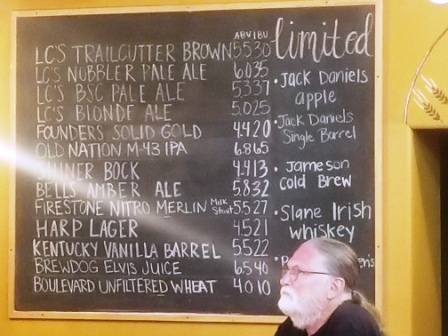 ABV IBU
limited
LC'S TRAILCUTTER BROWN 5.5 30
LC'S NUBBLER PALE ALE 6.0 35
LC'S BSC PALE ALE 5.3 37
LC'S BLONDE ALE 5.0 25
FOUNDERS SOLID GOLD 4.4 20
OLD NATION M-43 IPA 6.8 65
SHINER BOCK 4.4 13
BELLS AMBER ALE 5.8 32
FIRESTONE NITRO MERLIN Milk Stout 5.5 27
HARP LAGER 4.5 21
KENTUCKY VANILLA BARREL 5.5 22
BREWDOG ELVIS JUICE 6.5 40
BOULEVARD UNFILTERED WHEAT 4.0 10
• Jack Daniels
apple
• Jack Daniel's
Single Barrel
• Jameson
cold Brew
• Slane Irish
whiskey